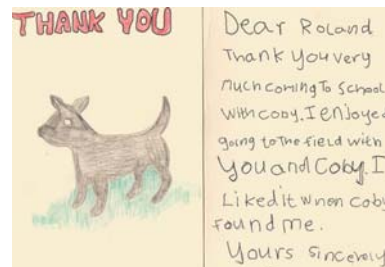 THANK YOU
Dear Roland
Thank you very
much coming To School
with coby. I enjoyed
going to the field with
you and Coby. I
Liked it when coby
found me.
Yours sincerely